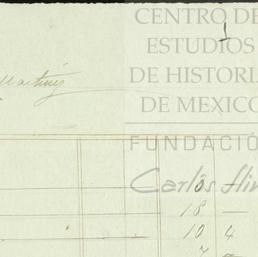 1
CENTRO DE
ESTUDIOS
DE HISTORIA
DE MEXICO
Martínez
FUNDACIÓ
Carlos Slim
18 —
10 4